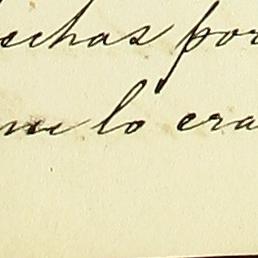 echas por
lo era